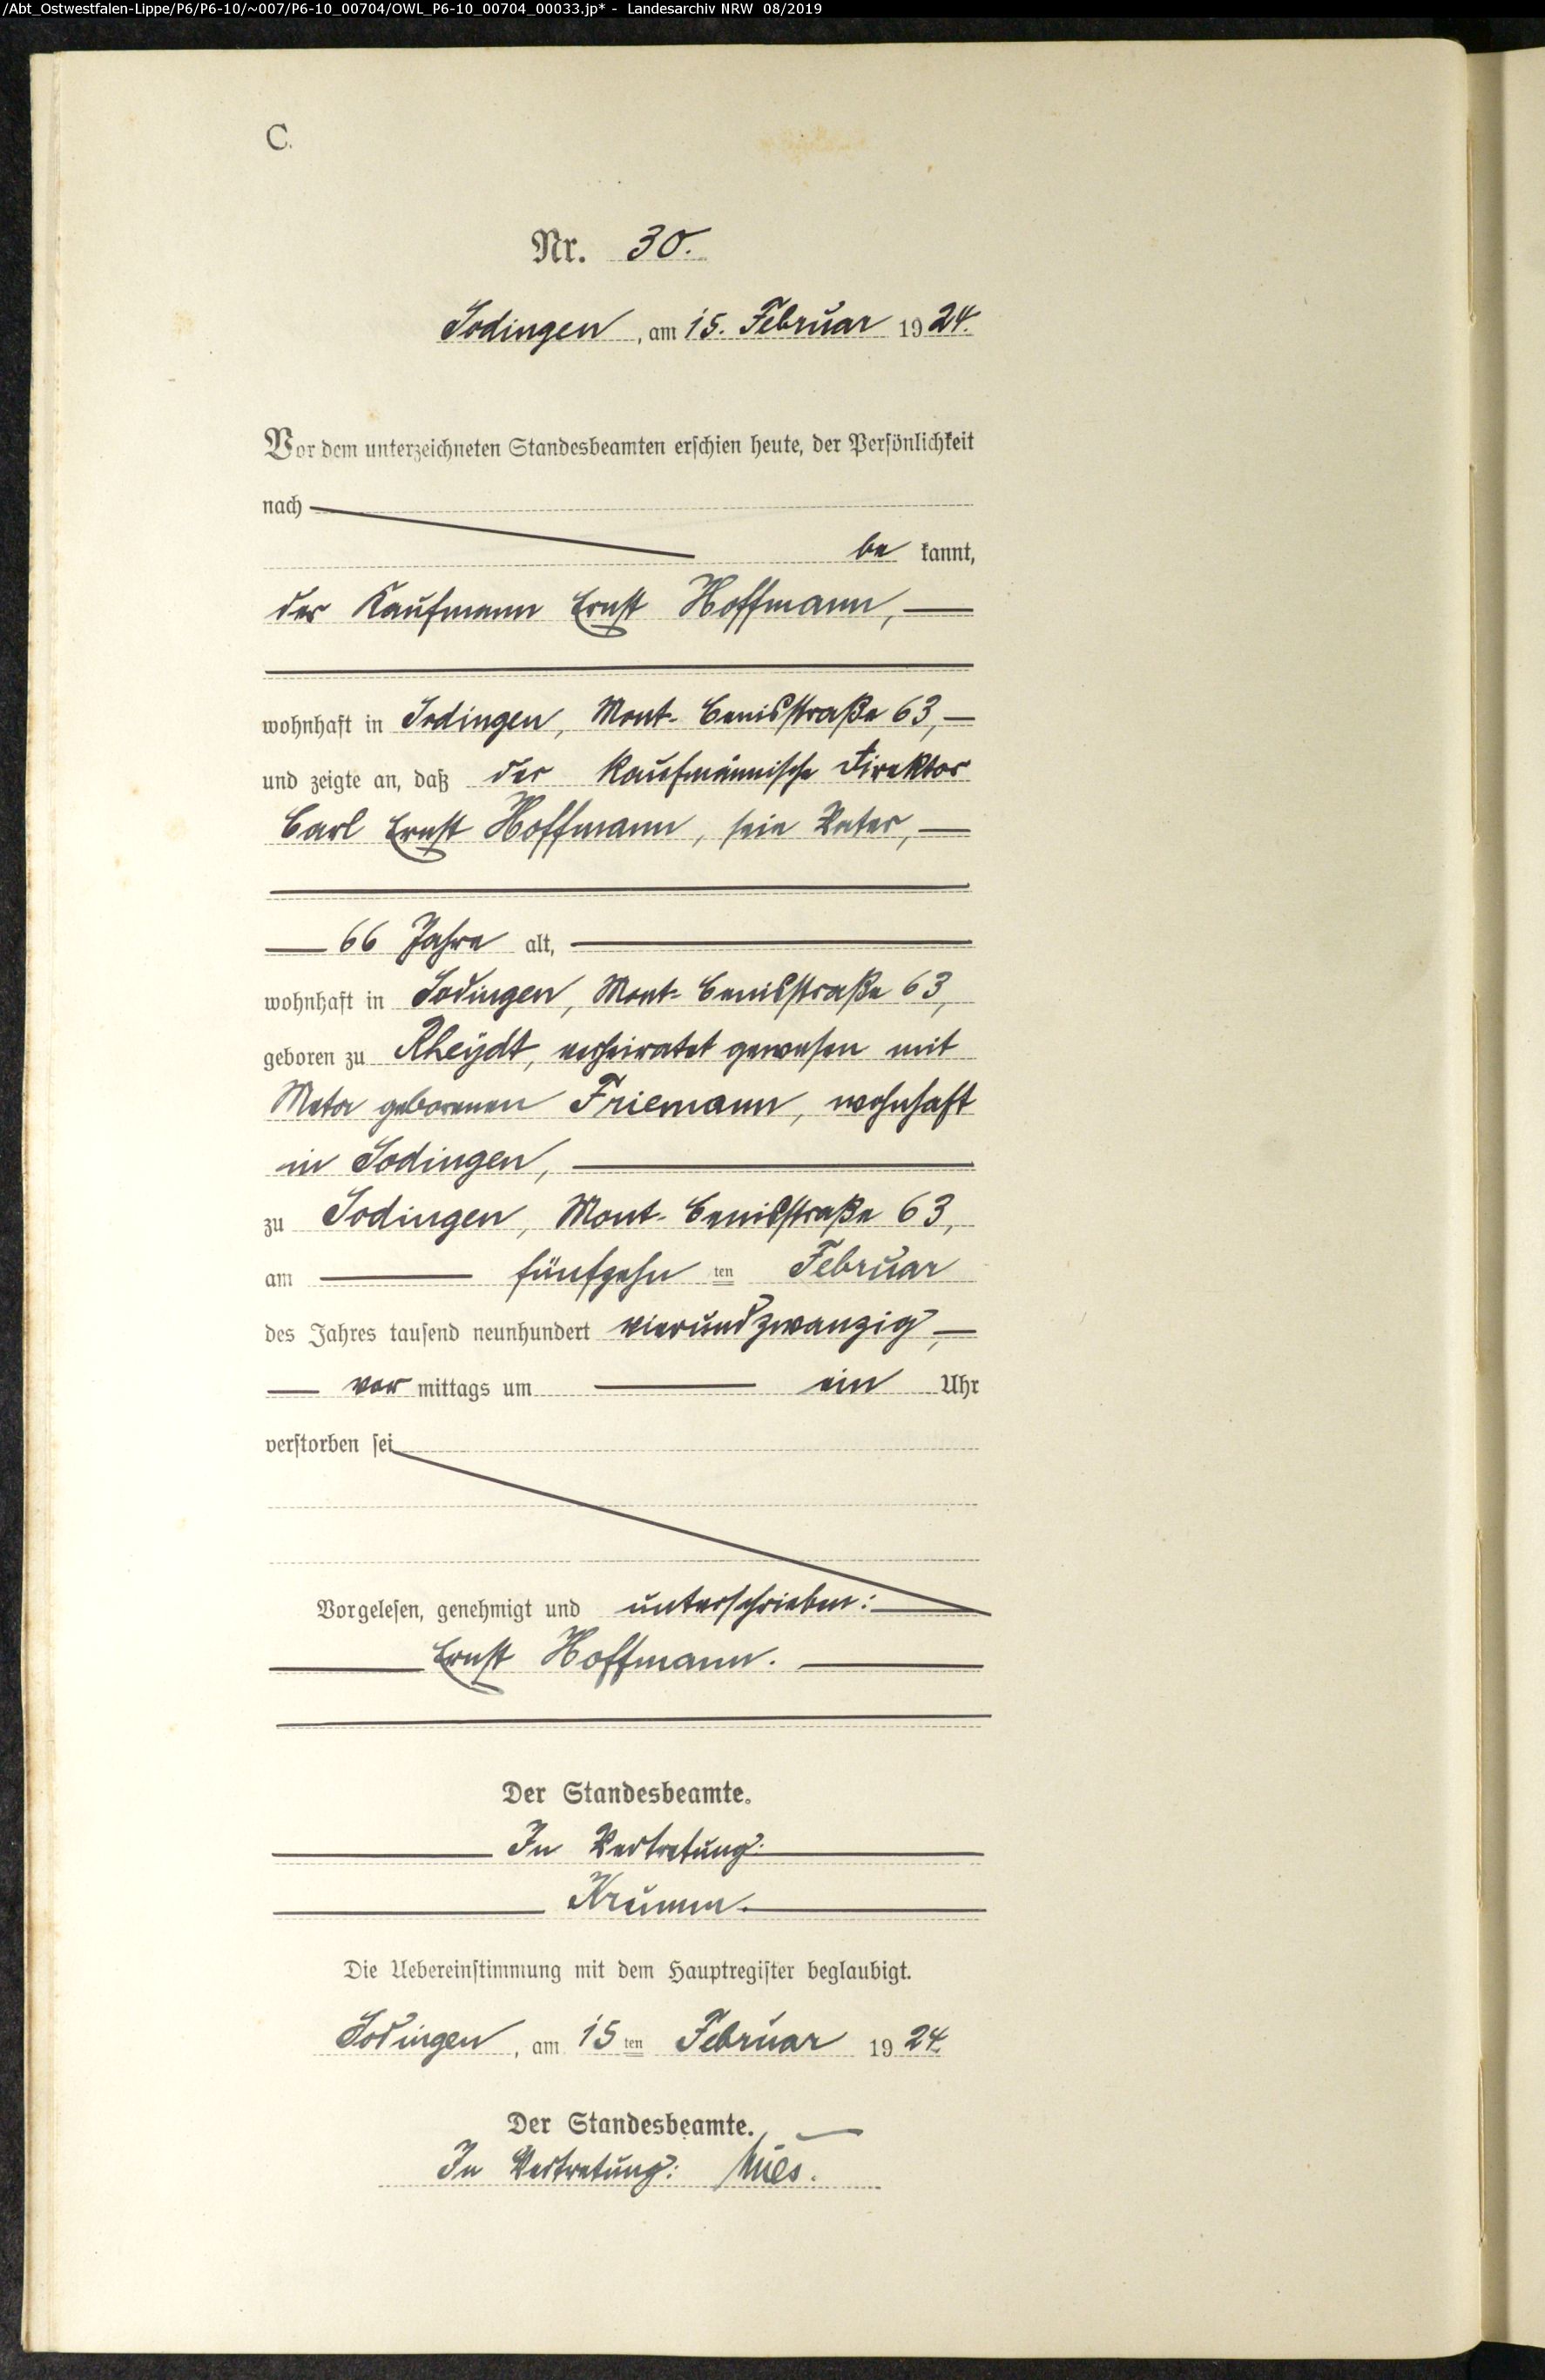 /Abt_Ostwestfalen-Lippe/P6/P6-10/~007/P6-10_00704/OWL_P6-10_00704_00033.jp* - Landesarchiv NRW 08/2019
C.
Nr. 30.
Sodingen, am 15. Februar 1924.
Vor dem unterzeichneten Standesbeamten erschien heute, der Persönlichkeit
nach
be kannt,
der Kaufmann Ernst Hoffmann,
wohnhaft in Sodingen, Mont-Cenisstraße 63,
und zeigte an, daß der kaufmännische Direktor
Carl Ernst Hoffmann, sein Vater,
66 Jahre alt,
wohnhaft in Sodingen, Mont-Cenisstraße 63,
geboren zu Rheydt, verheiratet gewesen mit
Meta geborenen Friemann, wohnhaft
in Sodingen,
zu Sodingen, Mont-Cenisstraße 63,
am fünfzehn ten Februar
des Jahres tausend neunhundert vierundzwanzig,
vor mittags um ein Uhr
verstorben sei
Vorgelesen, genehmigt und unterschrieben:
Ernst Hoffmann.
Der Standesbeamte.
In Vertretung:
Krumm.
Die Uebereinstimmung mit dem Hauptregister beglaubigt.
Sodingen, am 15 ten Februar 1924.
Der Standesbeamte.
In Vertretung: